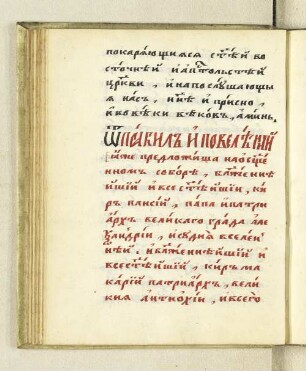 покаряющимся ст҃ѣй во
сточнѣй и ап҃тольстѣй
цр҃кви, и на послушающы
я насъ, нн҃ѣ и присно,
и во вѣки вѣковъ, аминь.
Ѿ правилъ и повелѣнїй
ꙗже предложиша на ос҃щен
номъ соборѣ, бл҃женнѣ
йшїй и все ст҃ѣйшїй, ки
ръ паисїй, папа и патри
архъ великаго града але
ѯандрїи, и судїѧ вселен
нѣй. и бл҃женнѣйшїй и
всест҃ѣйшїй, киръ ма
карїй патрїархъ, вели
кия антиохїи, и всего